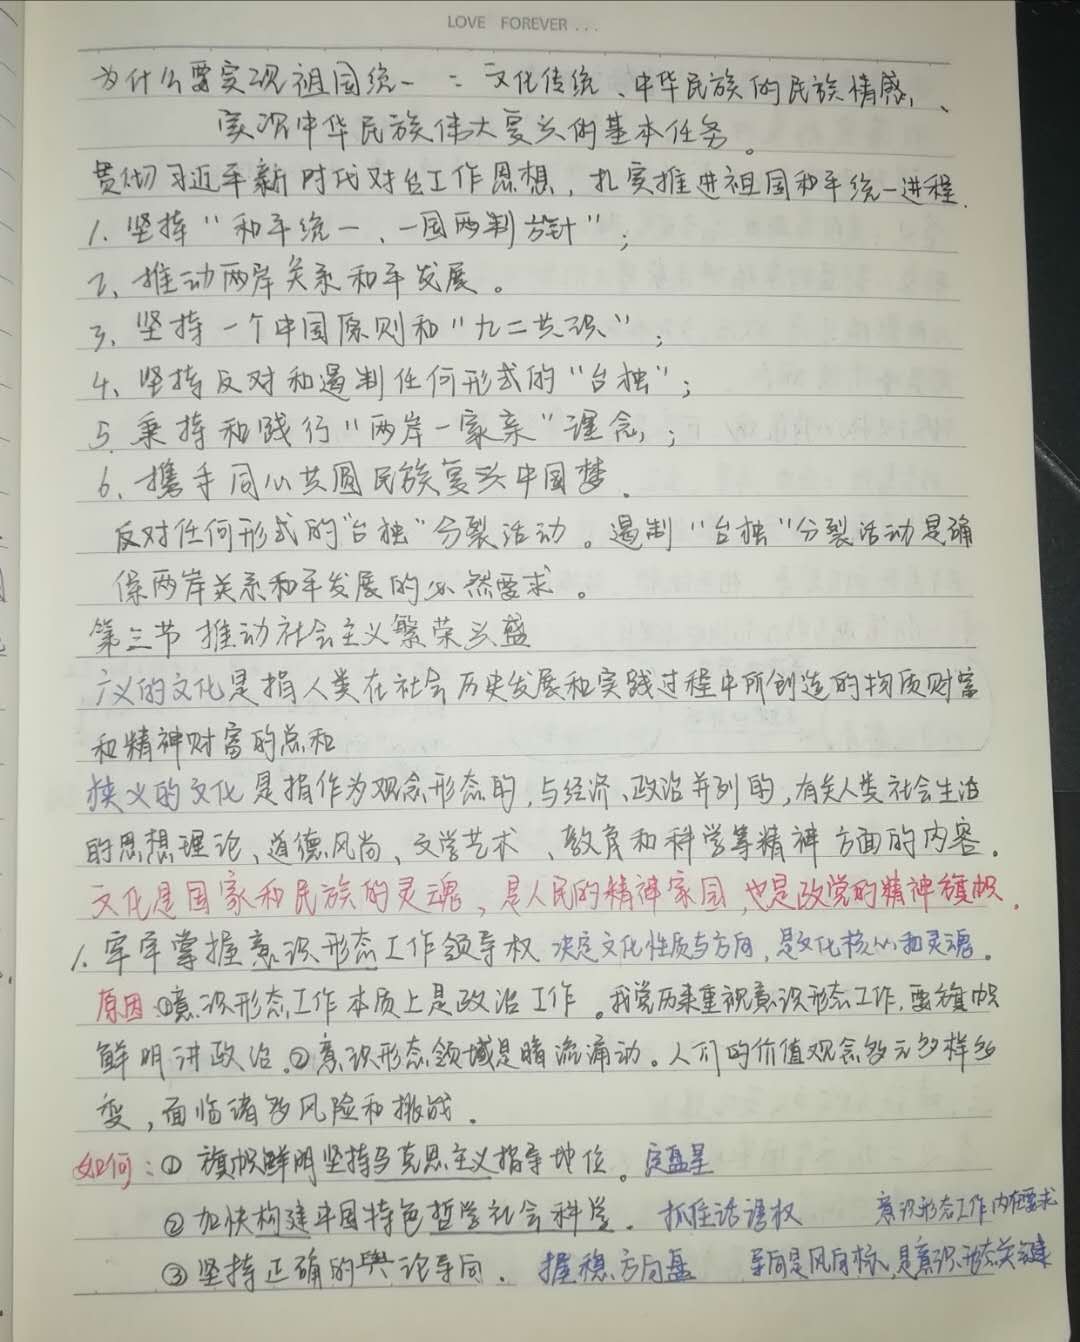 LOVE FOREVER...
为什么要实现祖国统一：文化传统、中华民族的民族情感、
实现中华民族伟大复兴的基本任务。
贯彻习近平新时代对台工作思想，扎实推进祖国和平统一进程.
1、坚持“和平统一、一国两制方针”；
2、推动两岸关系和平发展。
3、坚持一个中国原则和“九二共识”；
4、坚持反对和遏制任何形式的“台独”；
5.秉持和践行“两岸一家亲”理念；
6、携手同心共圆民族复兴中国梦.
反对任何形式的“台独”分裂活动。遏制“台独”分裂活动是确
保两岸关系和平发展的必然要求。
第三节 推动社会主义繁荣兴盛
广义的文化是指人类在社会历史发展和实践过程中所创造的物质财富
和精神财富的总和
狭义的文化是指作为观念形态的，与经济、政治并列的，有关人类社会生活
的思想理论、道德风尚、文学艺术、教育和科学等精神方面的内容。
文化是国家和民族的灵魂，是人民的精神家园，也是政党的精神旗帜.
1.牢牢掌握意识形态工作领导权 决定文化性质与方向，是文化核心和灵魂。
原因：①意识形态工作本质上是政治工作。我党历来重视意识形态工作，要旗帜
鲜明讲政治.②意识形态领域是暗流涌动。人们的价值观念多元多样多
变，面临诸多风险和挑战.
如何：① 旗帜鲜明坚持马克思主义指导地位。定盘星
②加快构建中国特色哲学社会科学. 抓住话语权 意识形态工作内在要求
③坚持正确的舆论导向. 握稳方向盘 导向是风向标，是意识形态关键